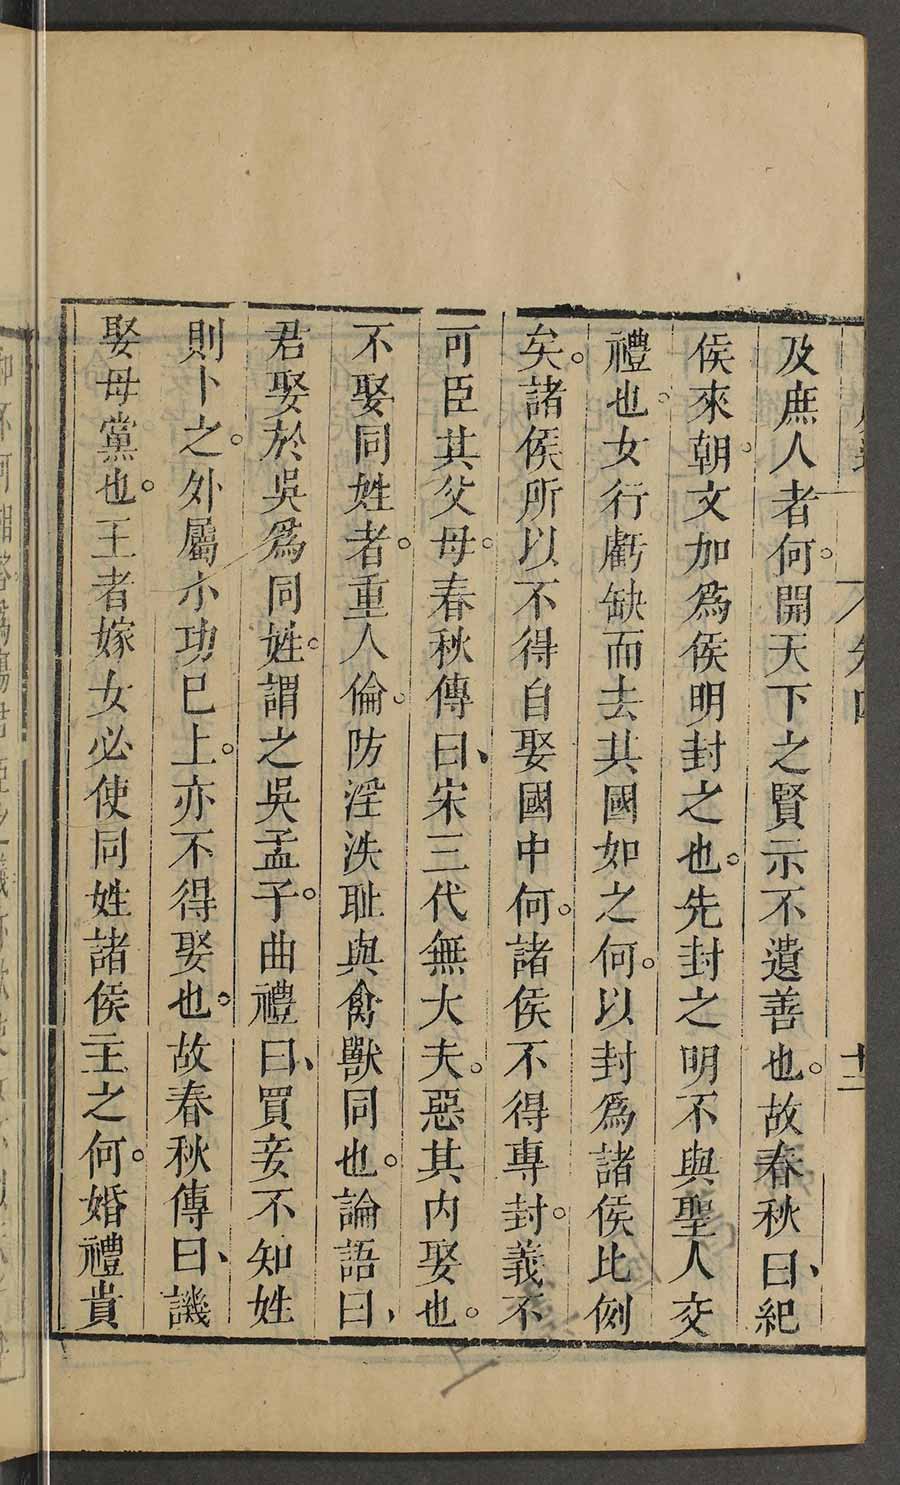 及庶人者何。開天下之賢示不遺善也。故春秋曰、紀
侯來朝。文加爲侯明封之也。先封之明不與聖人交
禮也。女行虧缺而去其國如之何。以封爲諸侯比例
矣。諸侯所以不得自娶國中何。諸侯不得專封。義不
可臣其父母。春秋傳曰、宋三代無大夫。惡其内娶也。
不娶同姓者。重人倫。防淫泆耻與禽獸同也。論語曰、
君娶於吳爲同姓。謂之吳孟子。曲禮曰、買妾不知姓
則卜之。外屬小功已上。亦不得娶也。故春秋傳曰、譏
娶母黨也。王者嫁女必使同姓諸侯主之何。婚禮貴